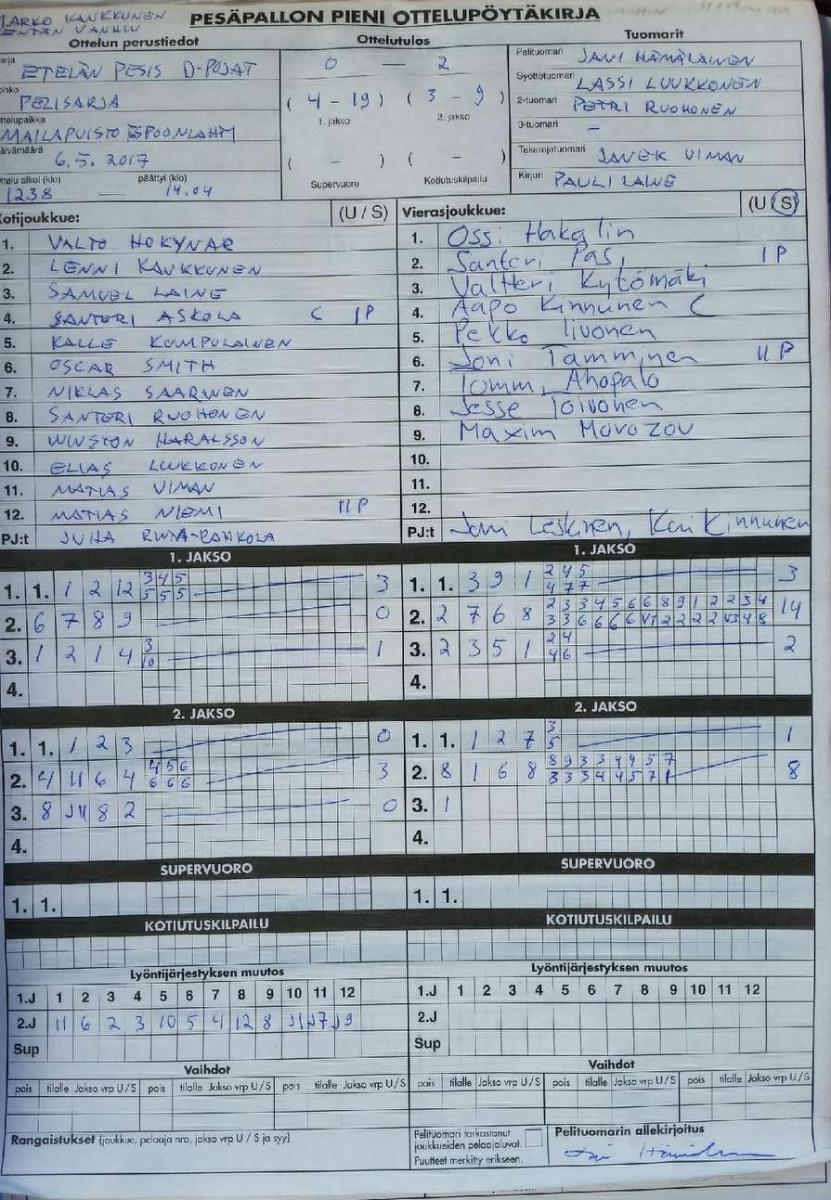 MARKO KAUKKUNEN
KENTÄN VANHIN
PESÄPALLON PIENI OTTELUPÖYTÄKIRJA
Ottelun perustiedot
ETELÄN PESIS D-POJAT
PELISARJA
MAILAPUISTO ESPOONLAHTI
6.5.2017
Ottelu alkoi (klo) päättyi (klo)
1238 — 14.04
Ottelutulos
0 — 2
( 4 - 19 ) ( 3 - 9 )
1. jakso 2. jakso
( - ) ( - )
Supervuoro Kotiutuskilpailu
Tuomarit
Pelituomari JANI HÄMÄLÄINEN
Syöttötuomari LASSI LUUKKONEN
2-tuomari PETRI RUOHONEN
3-tuomari —
Takarajatuomari JANEK VIMAN
Kirjuri PAULI LAINE
Kotijoukkue: (U / S)
1. VALTO HOKYNAR
2. LENNI KAUKKUNEN
3. SAMUEL LAINE
4. SANTERI ASKOLA C I P
5. KALLE KUMPULAINEN
6. OSCAR SMITH
7. NIKLAS SAARINEN
8. SANTERI RUOHONEN
9. WINSTON HARALSSON
10. ELIAS LUUKKONEN
11. MATIAS VIMAN
12. MATIAS NIEMI II P
PJ:t JUHA
Vierasjoukkue: (U / S)
1. Ossi Hakalin
2. Santeri Pasi I P
3. Valtteri Kytömäki
4. Aapo Kinnunen C
5. Pekko Iivonen
6. Joni Tamminen II P
7. Tommi Ahopalo
8. Jesse Toivonen
9. Maxim Morozov
10.
11.
12.
PJ:t Jani Leskinen, Kari Kinnunen
1. JAKSO
1. 1. 1 2 12 3 4 5 3
5 5 5
2. 6 7 8 9 0
3. 1 2 1 4 3 1
10
4.
1. JAKSO
1. 1. 3 9 1 2 4 5 3
4 7 7
2. 2 7 6 8 2 3 3 4 5 6 6 8 9 1 2 2 3 4 14
3. 2 3 5 1 2 4 2
4 6
4.
2. JAKSO
1. 1. 1 2 3 0
2. 4 11 6 4 4 5 6 3
6 6 6
3. 8 J11 8 2 0
4.
2. JAKSO
1. 1. 1 2 7 3 1
5
2. 8 1 6 8 8 9 3 3 4 4 5 7 8
3 3 3 4 4 5 7 1
3. 1
4.
SUPERVUORO
1. 1.
SUPERVUORO
1. 1.
KOTIUTUSKILPAILU
KOTIUTUSKILPAILU
Lyöntijärjestyksen muutos
1.J 1 2 3 4 5 6 7 8 9 10 11 12
2.J 11 6 2 3 10 5 4 12 8 J1 J7 J9
Sup
Lyöntijärjestyksen muutos
1.J 1 2 3 4 5 6 7 8 9 10 11 12
2.J
Sup
Vaihdot
pois tilalle Jakso vrp U/S pois tilalle Jakso vrp U/S pois tilalle Jakso vrp U/S
Vaihdot
pois tilalle Jakso vrp U/S pois tilalle Jakso vrp U/S pois tilalle Jakso vrp U/S
Rangaistukset (joukkue, pelaaja nro, jakso vrp U / S ja syy)
Pelituomari tarkastanut
joukkueiden pelaajaluval.
Puutteet merkitty erikseen.
Pelituomarin allekirjoitus